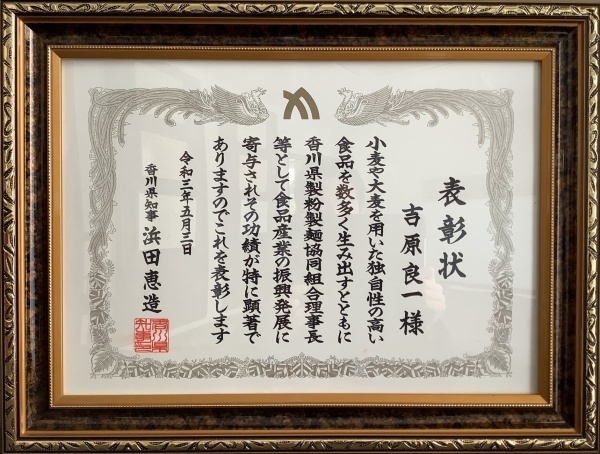 表彰状
吉原良一様
小麦や大麦を用いた独自性の高い
食品を数多く生み出すとともに
香川県製粉製麺協同組合理事長
等として食品産業の振興発展に
寄与されその功績が特に顕著で
ありますのでこれを表彰します
令和三年五月三日
香川県知事 浜田恵造